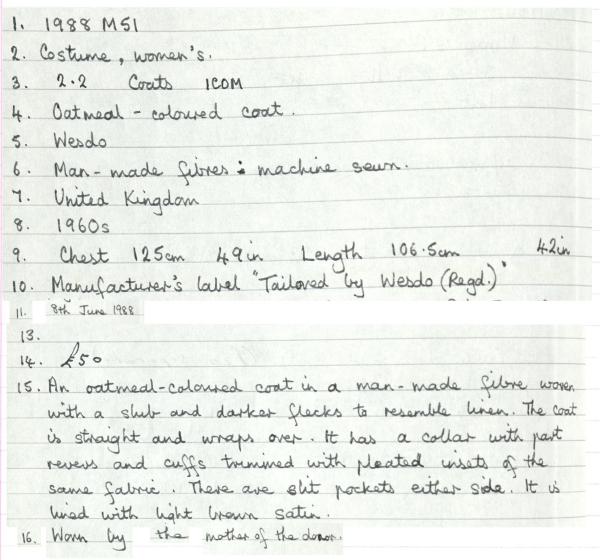 1. 1988 M51
2. Costume, women's.
3. 2.2 Coats ICOM
4. Oatmeal-coloured coat.
5. Wesdo
6. Man-made fibres: machine sewn.
7. United Kingdom
8. 1960s
9. Chest 125cm 49in Length 106.5cm 42in
10. Manufacturer's label "Tailored by Wesdo (Regd.)"
11. 8th June 1988
13.
14. £50
15. An oatmeal-coloured coat in a man-made fibre woven
with a slub and darker flecks to resemble linen. The coat
is straight and wraps over. It has a collar with part
revers and cuffs trimmed with pleated insets of the
same fabric. There are slit pockets either side. It is
lined with light brown satin.
16. Worn by the mother of the donor.